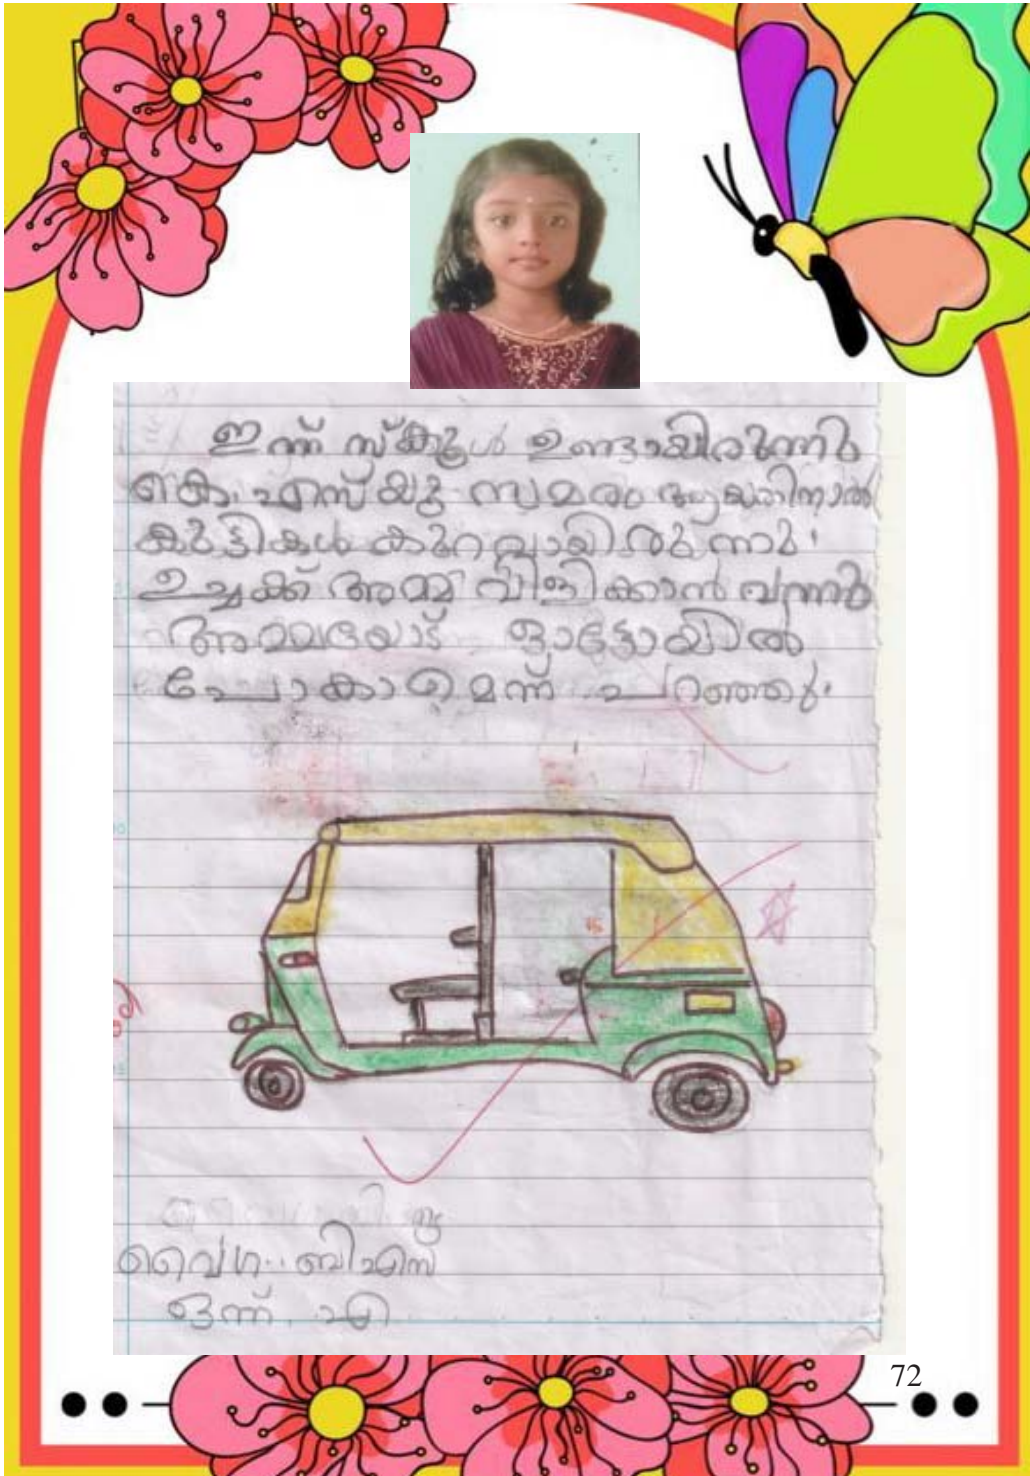 ഇന്ന് സ്കൂൾ ഉണ്ടായിരുന്നു
കെ.എസ് യു സമരം ആയതിനാൽ
കുട്ടികൾ കുറവായിരുന്നു.
ഉച്ചക്ക് അമ്മ വിളിക്കാൻ വന്നു
അമ്മയോട് ഓട്ടോയിൽ
പോകാമെന്ന് പറഞ്ഞു.
വൈഗ. ബിഎസ്
ഒന്ന്. എ
72